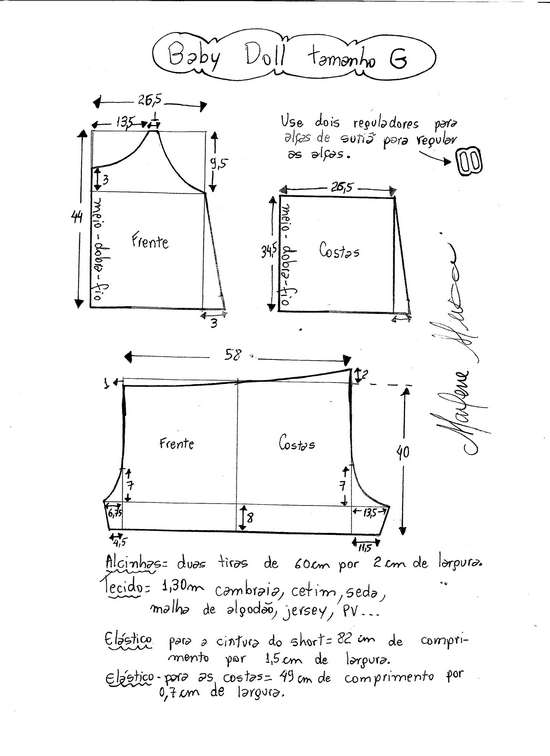 Baby Doll tamanho G
26,5
13,5
1
Use dois reguladores para
alças de sutiã para regular
as alças.
9,5
3
44
meio-dobra-fio
Frente
3
26,5
34,5
meio-dobra-fio
Costas
58
1
2
Frente
Costas
40
7
7
6,75
8
13,5
4,5
11,5
Marlene Mukai
Alcinhas= duas tiras de 60cm por 2cm de largura.
Tecido= 1,30m cambraia, cetim, seda,
malha de algodão, jersey, PV...
Elástico para a cintura do short= 82 cm de compri-
mento por 1,5cm de largura.
Elástico-para as costas= 49cm de comprimento por
0,7cm de largura.